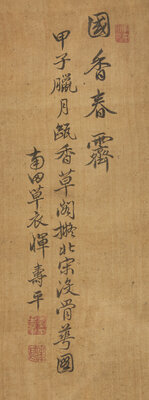 國香春霽
甲子臘月甌香草閣擬北宋沒骨華圖
南田草衣惲壽平